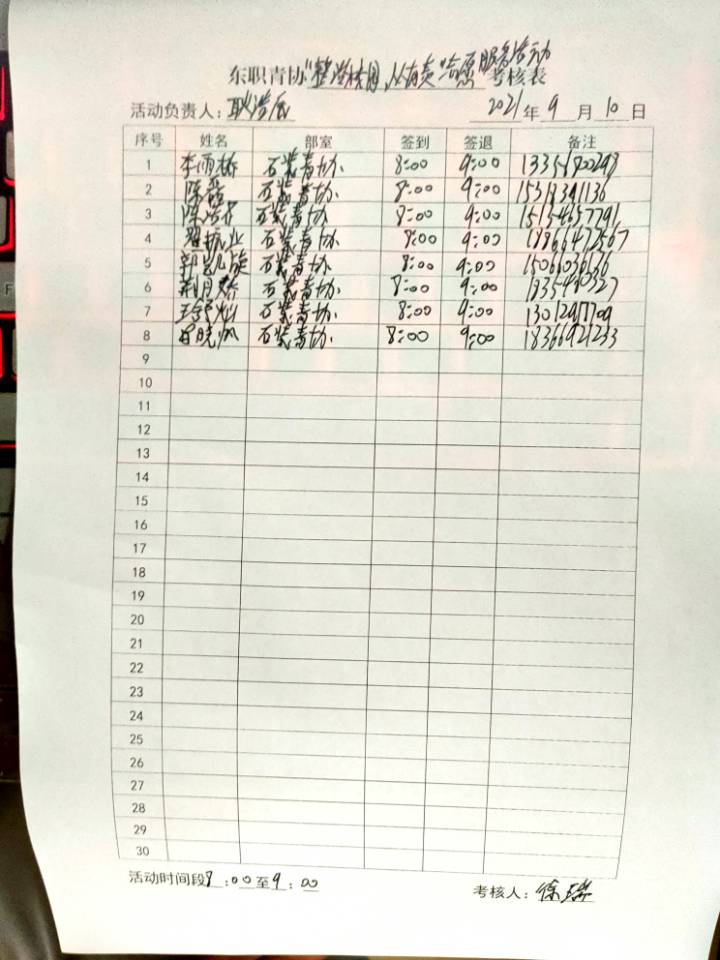 东职青协"整洁校园,从有责"志愿服务活动考核表
活动负责人:耿浩辰 2021年9月10日
序号 姓名 部室 签到 签退 备注
1 李雨桥 石装青协 8:00 9:00
2 陈磊 石装青协 8:00 9:00 15318341136
3 石装青协 8:00 9:00 15154657791
4 翟振业 石装青协 8:00 9:00 18866472567
5 郭凯旋 石装青协 8:00 9:00 15066036136
6 石装青协 8:00 9:00
7 石装青协 8:00 9:00
8 吕晓帆 石装青协 8:00 9:00 18366921233
9
10
11
12
13
14
15
16
17
18
19
20
21
22
23
24
25
26
27
28
29
30
活动时间段8:00至9:00 考核人:徐瑞